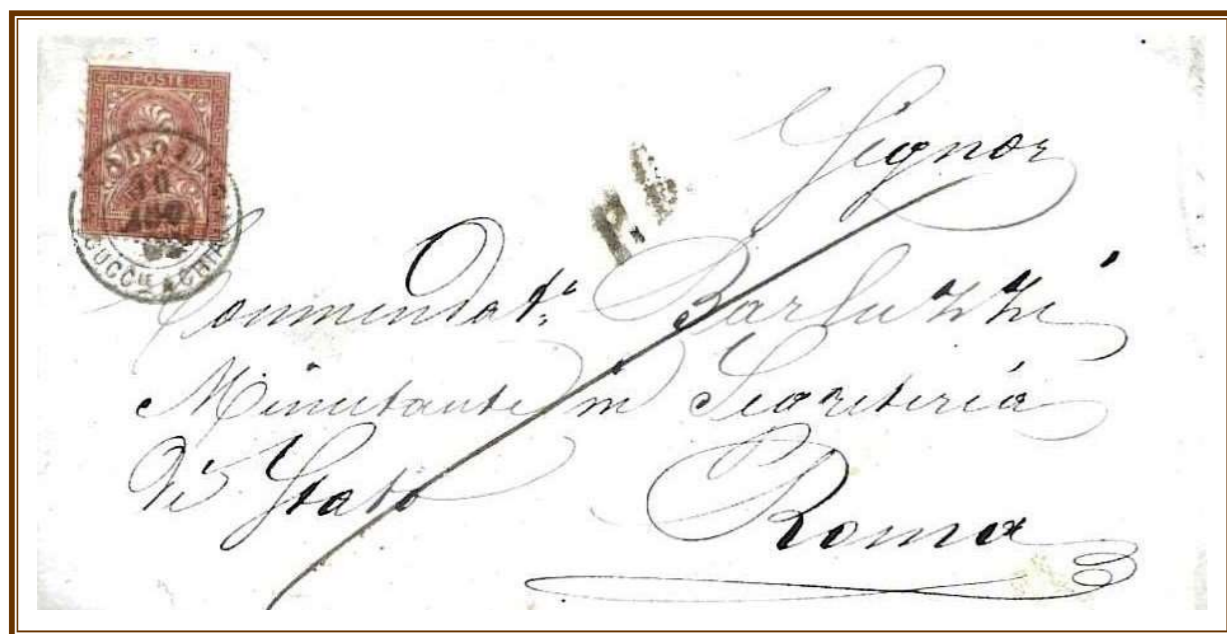 POSTE
10
P.D.
Signor
Commendat.e Barluzzi
Minutante in Segreteria
di Stato
Roma